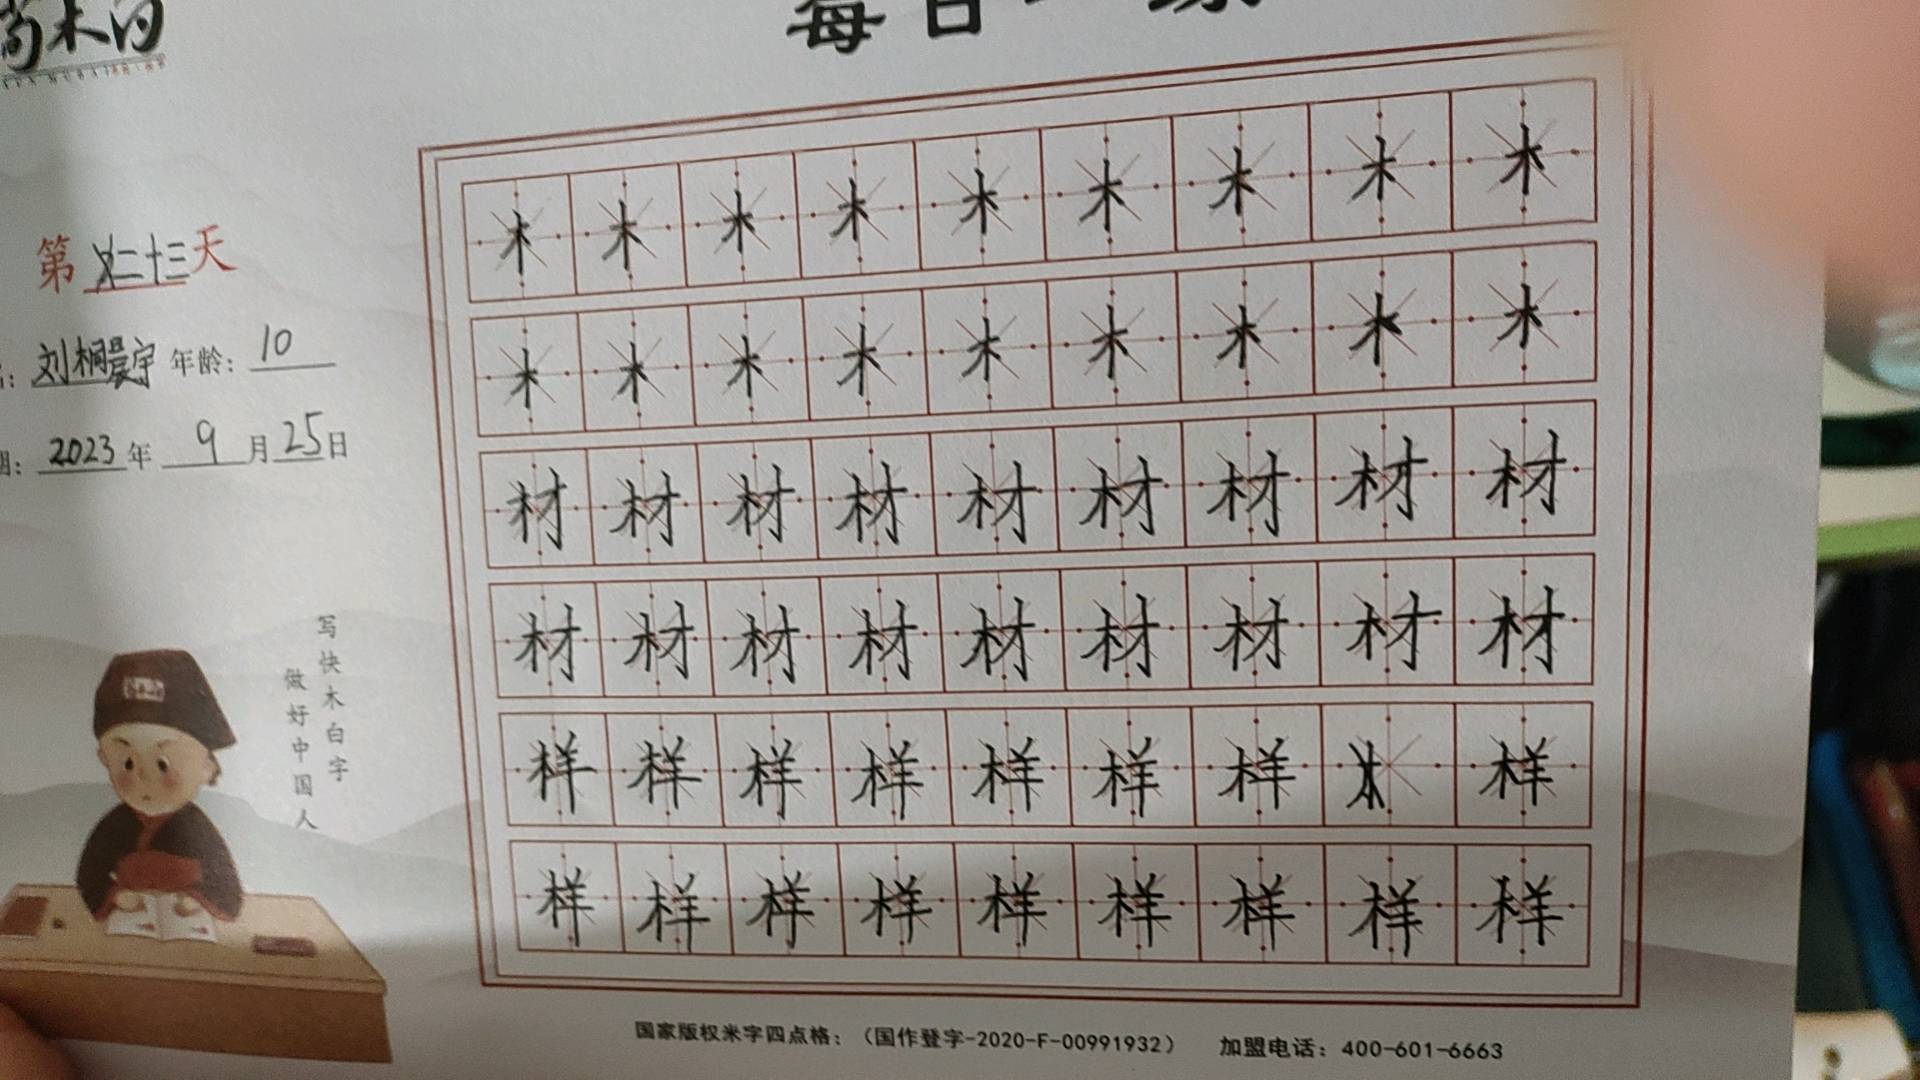 尚木白
每日一练
第二十三天
刘桐晨宇 年龄: 10
2023年 9月25日
木木木木木木木木木
木木木木木木木木木
材材材材材材材材材
材材材材材材材材材
样样样样样样样木样
样样样样样样样样样
写快木白字
做好中国人
国家版权米字四点格：（国作登字-2020-F-00991932） 加盟电话：400-601-6663